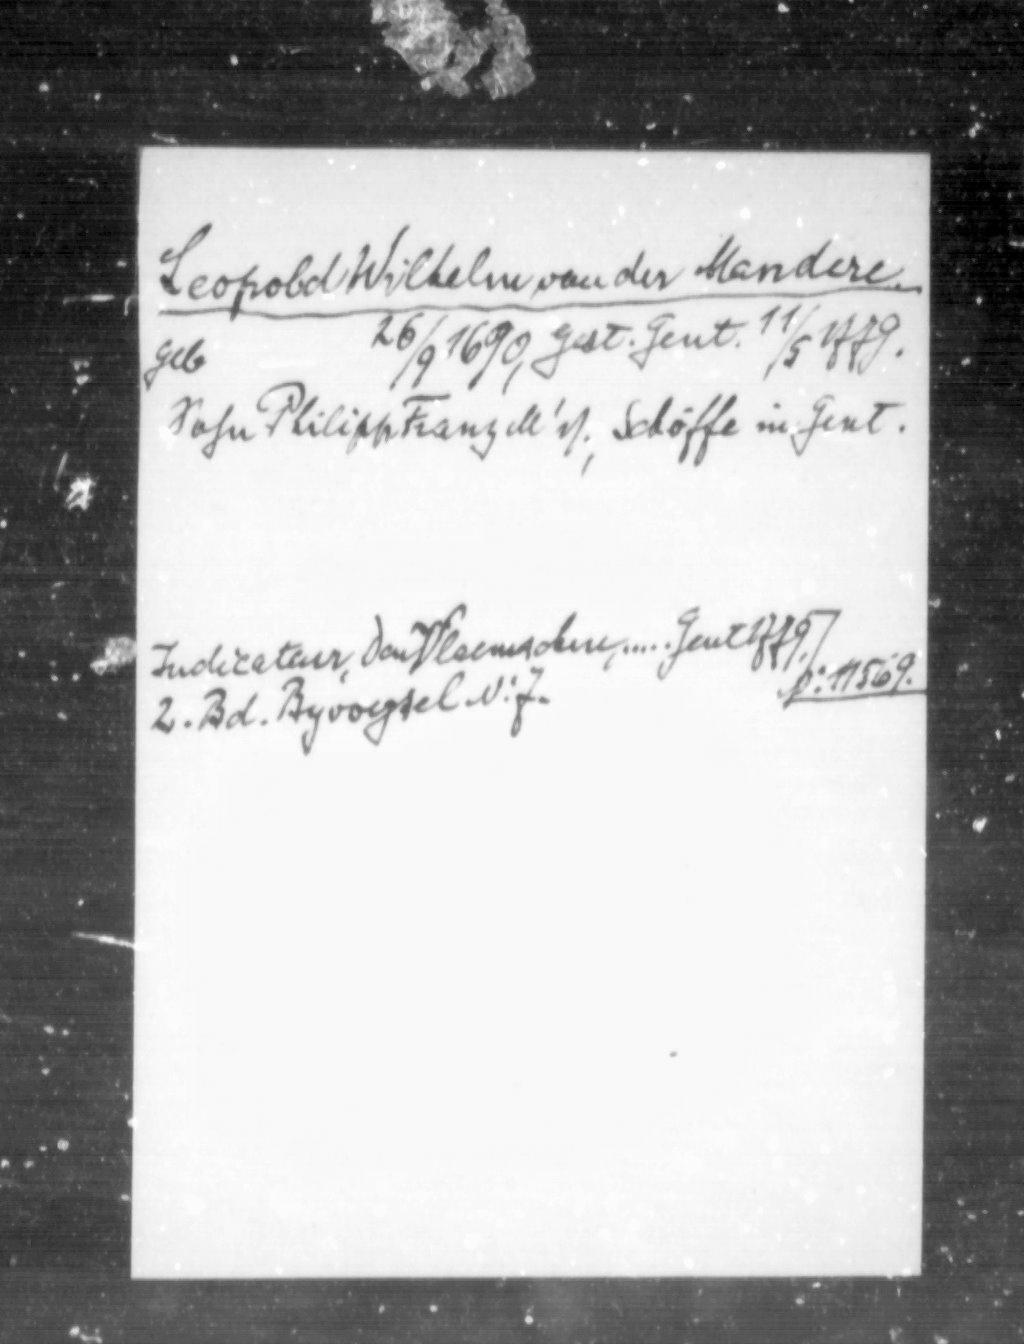 Leopold Wilhelm van der Mandere.
geb 26/9 1690, gest. Gent. 11/5 1779.
Sohn Philipp Franz M's, Schöffe in Gent.
Indicateur, Den Vlaemschen, ..... Gent 1779.
p. 11569.
2. Bd. Byvoegsel N: 7.